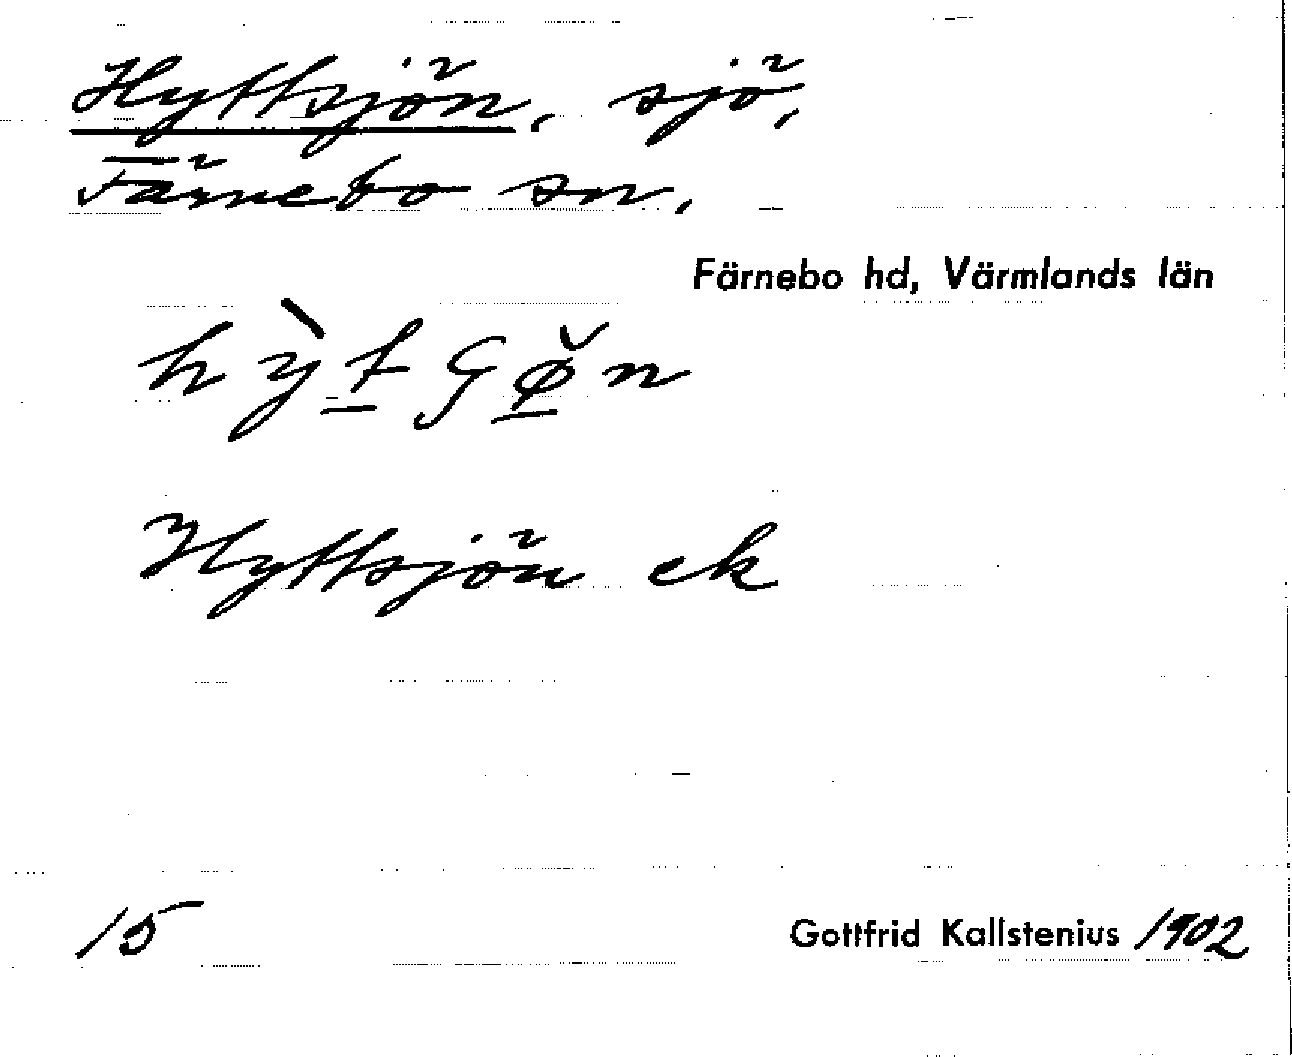 Hyttsjön, sjö,
Färnebo sn.
Färnebo hd, Värmlands län
hỳtʃø̆n
Hyttsjön ek
15
Gottfrid Kallstenius 1902